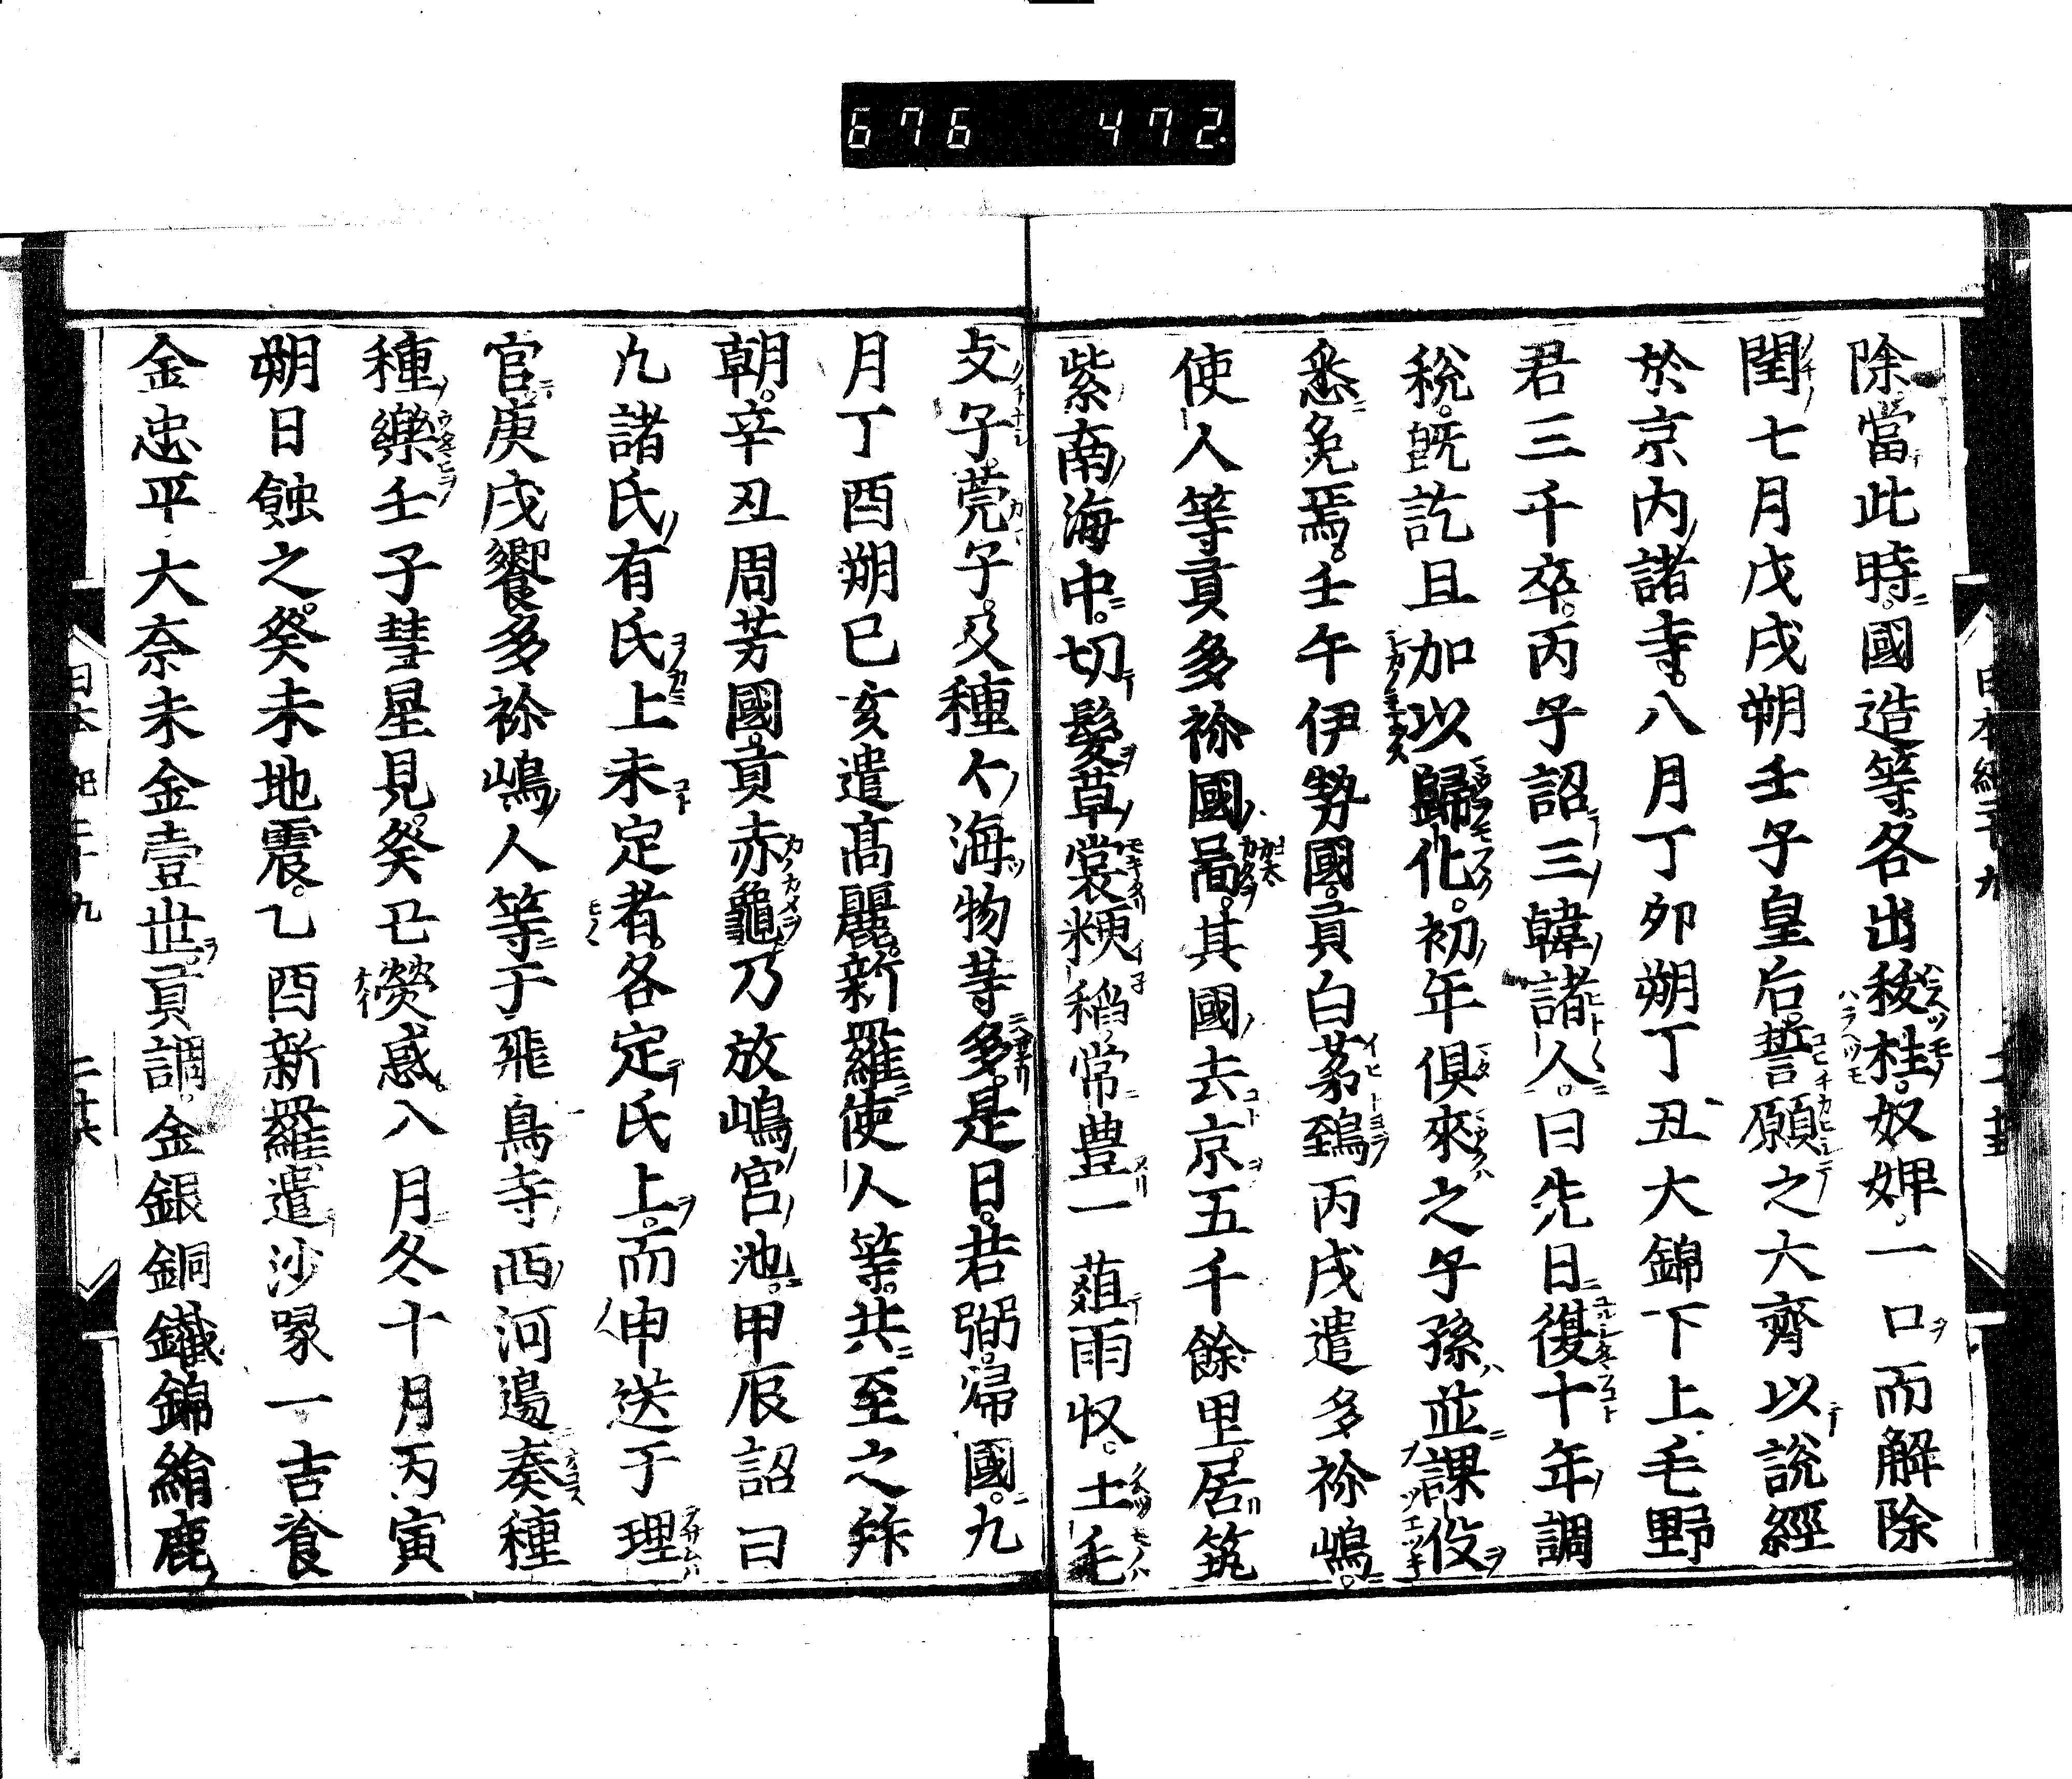 676 472.
除當此時國造等各出秡柱奴婢一口而解除
閏七月戊戌朔壬子皇后誓願之大齊以説經
於京内諸寺八月丁卯朔丁丑大錦下上毛野
君三千卒丙子詔三韓諸人曰先日復十年調
税既訖且加以歸化初年倶來之子孫並課役
悉免焉壬午伊勢國貢白茅鵄丙戌遣多祢嶋
使人等貢多祢國啚其國去京五千餘里居筑
紫南海中切髮草裳粳稻常豊一葅雨収土毛
支子莞子及種々海物等多是日若弼歸國九
月丁酉朔己亥遣髙麗新羅使人等共至之拜
朝辛丑周芳國貢赤龜乃放嶋宮池甲辰詔曰
凢諸氏有氏上未定者各定氏上而申送于理
官庚戌饗多祢嶋人等于飛鳥寺西河邊奏種
種樂壬子彗星見癸丑熒惑入月冬十月丙寅
朔日蝕之癸未地震乙酉新羅遣沙㖨一吉飡
金忠平大奈末金壹世貢調金銀銅鐵錦絹鹿
日本紀二十九
二十六